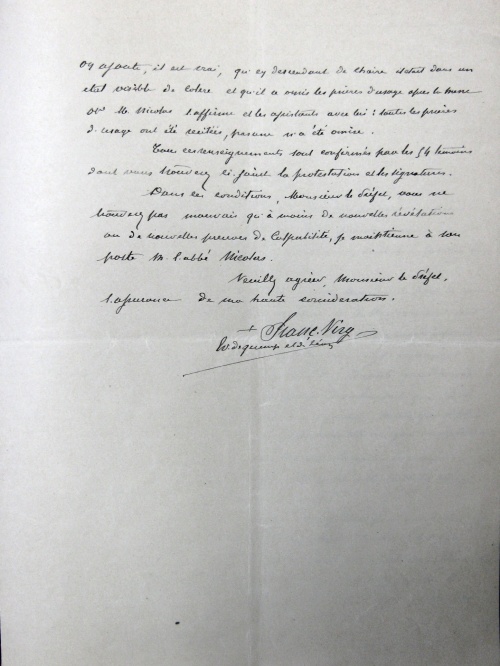 on ajoute, il est vrai, qu'en descendant de chaire il était dans un
état visible de colère et qu'il a omis les prières d'usage après la messe
or M. Nicolas l'affirme et les assistants avec lui : toutes les prières
d'usage ont été récitées, pas une n'a été omise.
Tous ces renseignements sont confirmés par les 54 témoins
dont vous trouverez ci-joint la protestation et les signatures.
Dans ces conditions, Monsieur le Préfet, vous ne
trouverez pas mauvais qu'à moins de nouvelles révélations
ou de nouvelles preuves de culpabilité, je maintienne à son
poste M. l'abbé Nicolas.
Veuillez agréer, Monsieur le Préfet,
l'assurance de ma haute considération.
+ Franç. Virg
Ev. de Quimper et de Léon